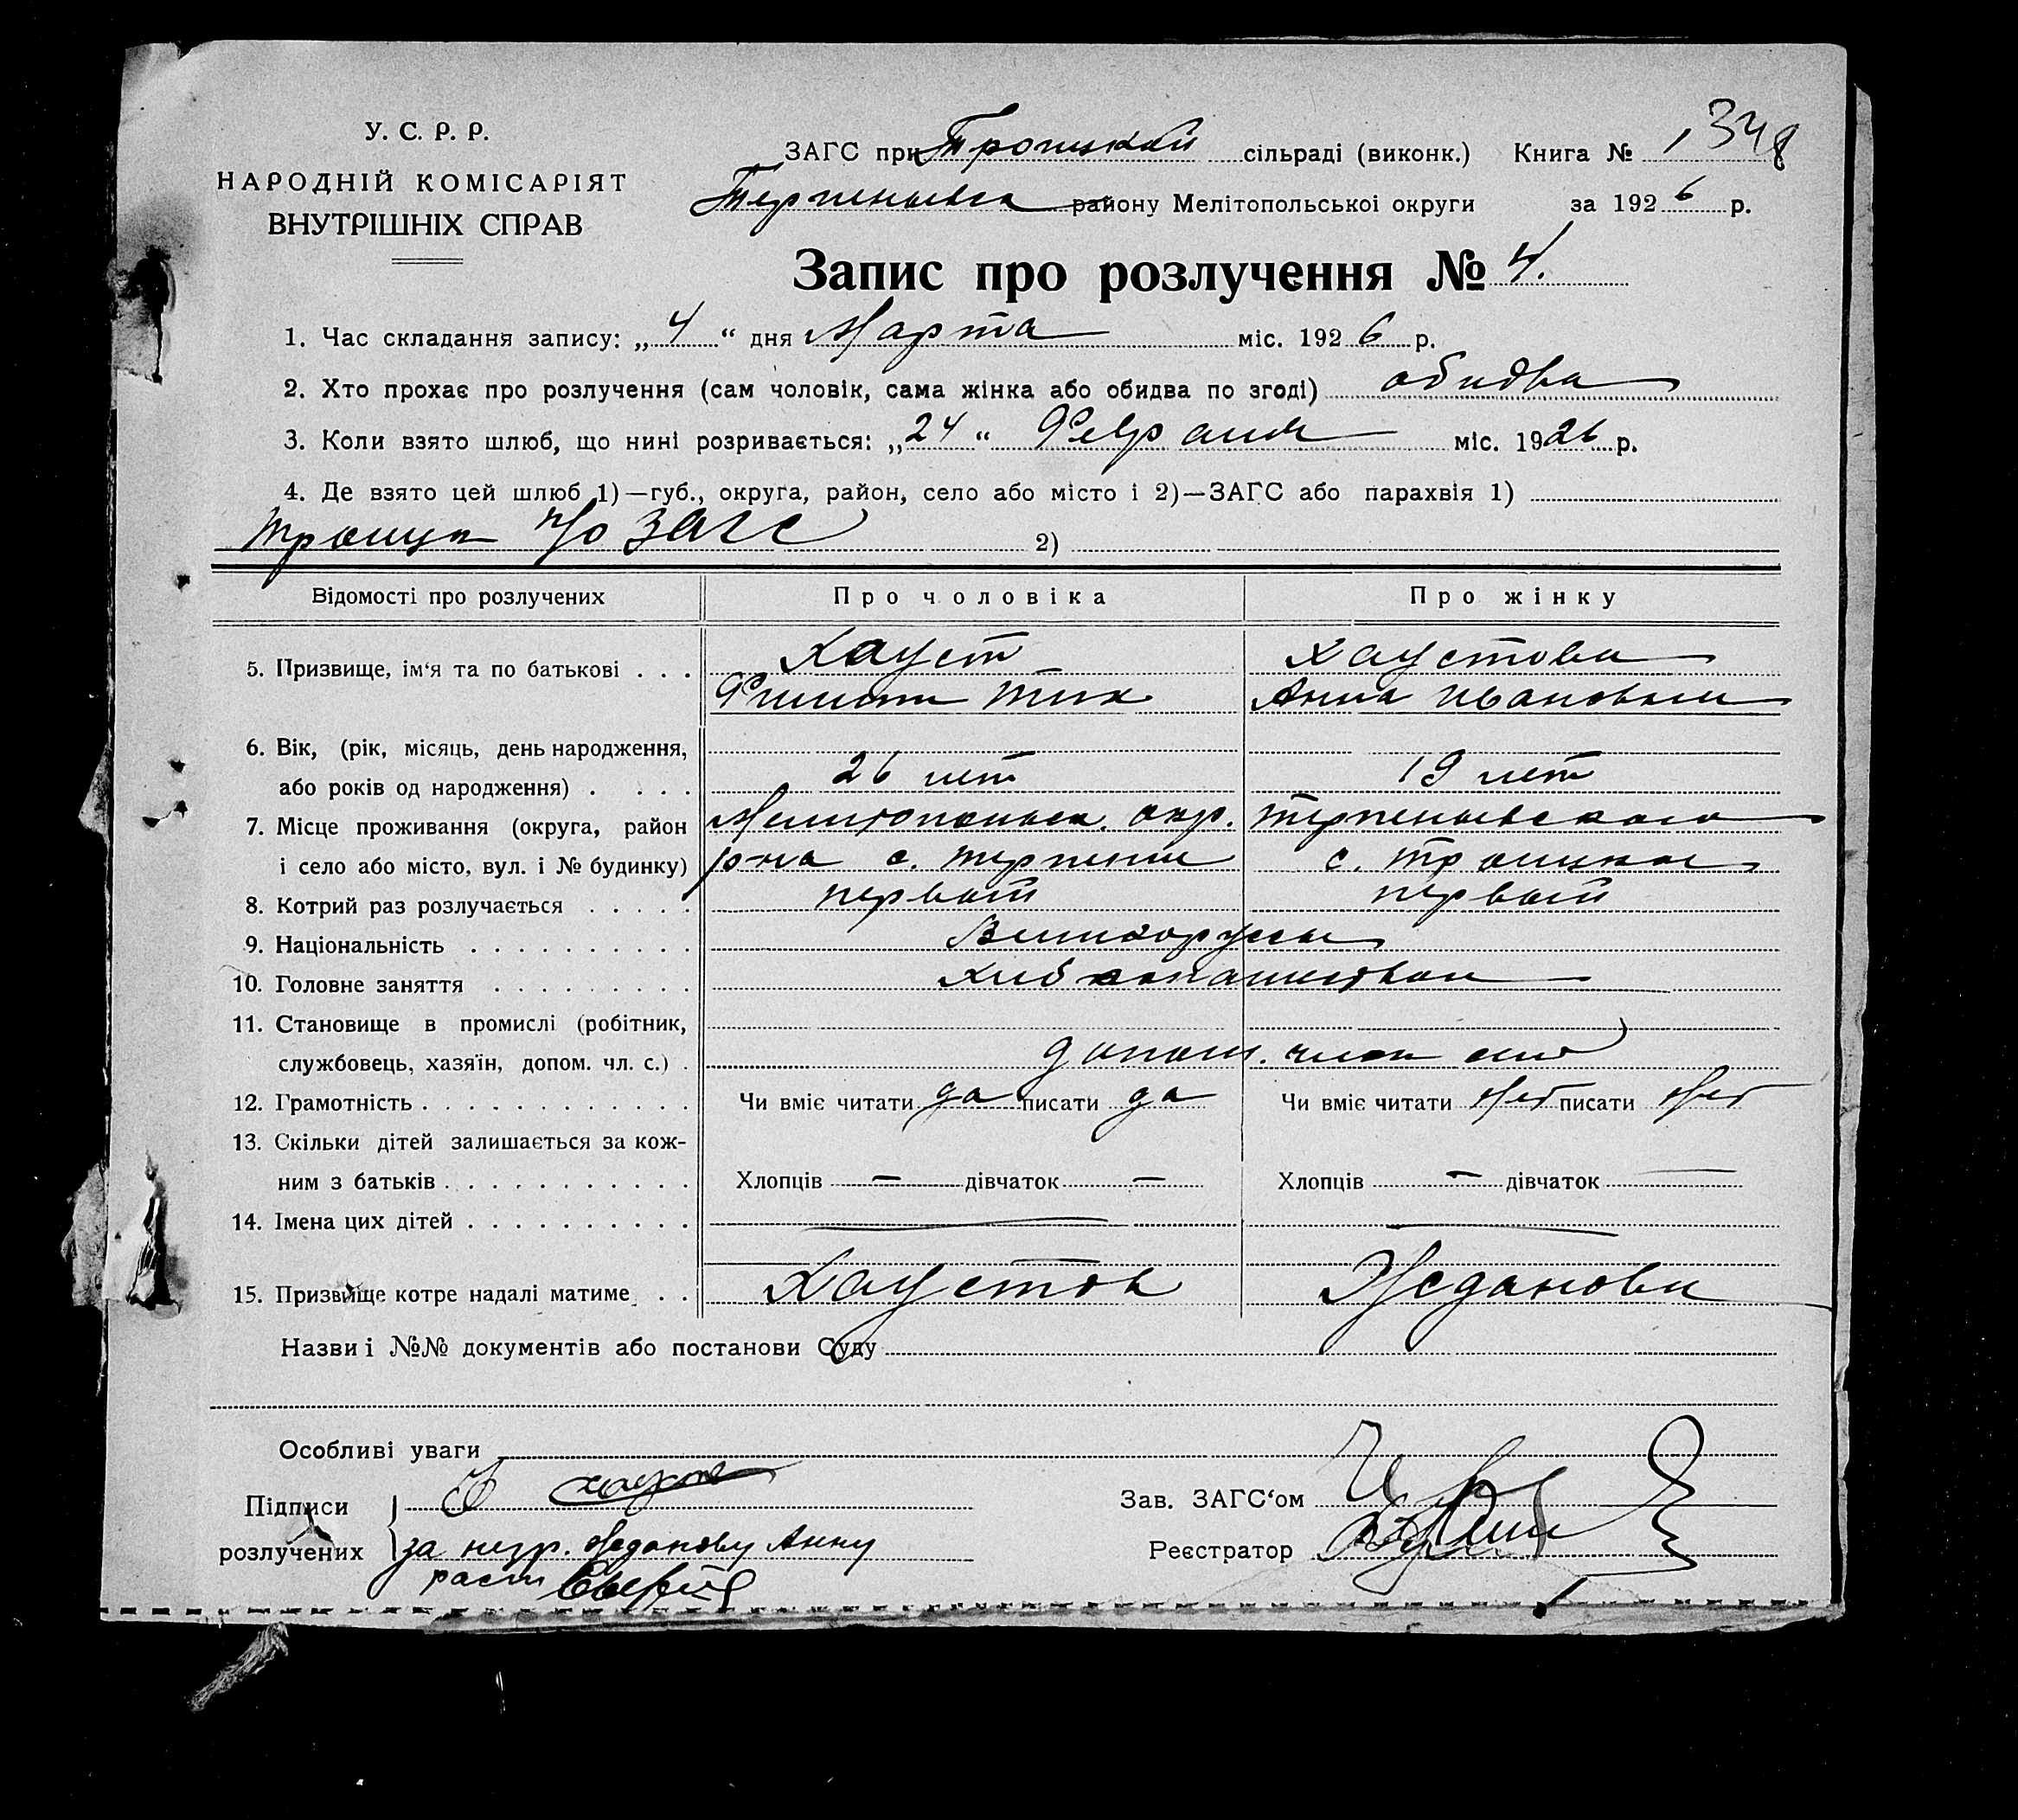 У. С. Р. Р.
НАРОДНІЙ КОМІСАРІЯТ
ВНУТРІШНІХ СПРАВ
ЗАГС при Троицкой сільраді (виконк.) Книга № 1 348
района Мелітопольськоі округи за 1926 р.
Запис про розлучення № 4.
1. Час складання запису: „4“ дня Марта міс. 1926 р.
2. Хто прохає про розлучення (сам чоловік, сама жінка або обидва по згоді) обидва
3. Коли взято шлюб, що нині розривається: „24“ Февраля міс. 1926 р.
4. Де взято цей шлюб 1)—губ., округа, район, село або місто і 2)—ЗАГС або парахвія 1)
ЗАГС 2)
Відомості про розлучених Про чоловіка Про жінку
5. Призвище, ім‘я та по батькові . . . Хауст Хаустова
Филипп Тих Анна Ивановна
6. Вік, (рік, місяць, день народження,
або років од народження) . . . . 26 лет 19 лет
7. Місце проживання (округа, район Мелитопольск. окр. Терпеньевского
і село або місто, вул. і № будинку) р-на с. Терпение с. Троицкое
8. Котрий раз розлучається . . . . . первый первый
9. Національність . . . . . . . . . . Великоруссы
10. Головне заняття . . . . . . . . .
11. Становище в промислі (робітник,
службовець, хазяїн, допом. чл. с.) . допом. член
12. Грамотність . . . . . . . . . . . . Чи вміє читати да писати да Чи вміє читати нет писати нет
13. Скільки дітей залишається за кож-
ним з батьків . . . . . . . . . . . Хлопців — дівчаток — Хлопців — дівчаток —
14. Імена цих дітей . . . . . . . . . .
15. Призвище котре надалі матиме . . Хаустов Жданова
Назви і №№ документів або постанови Суду
Особливі уваги
Підписи
Зав. ЗАГС‘ом
розлучених за негр. Жданову Анну
Реєстратор
расп